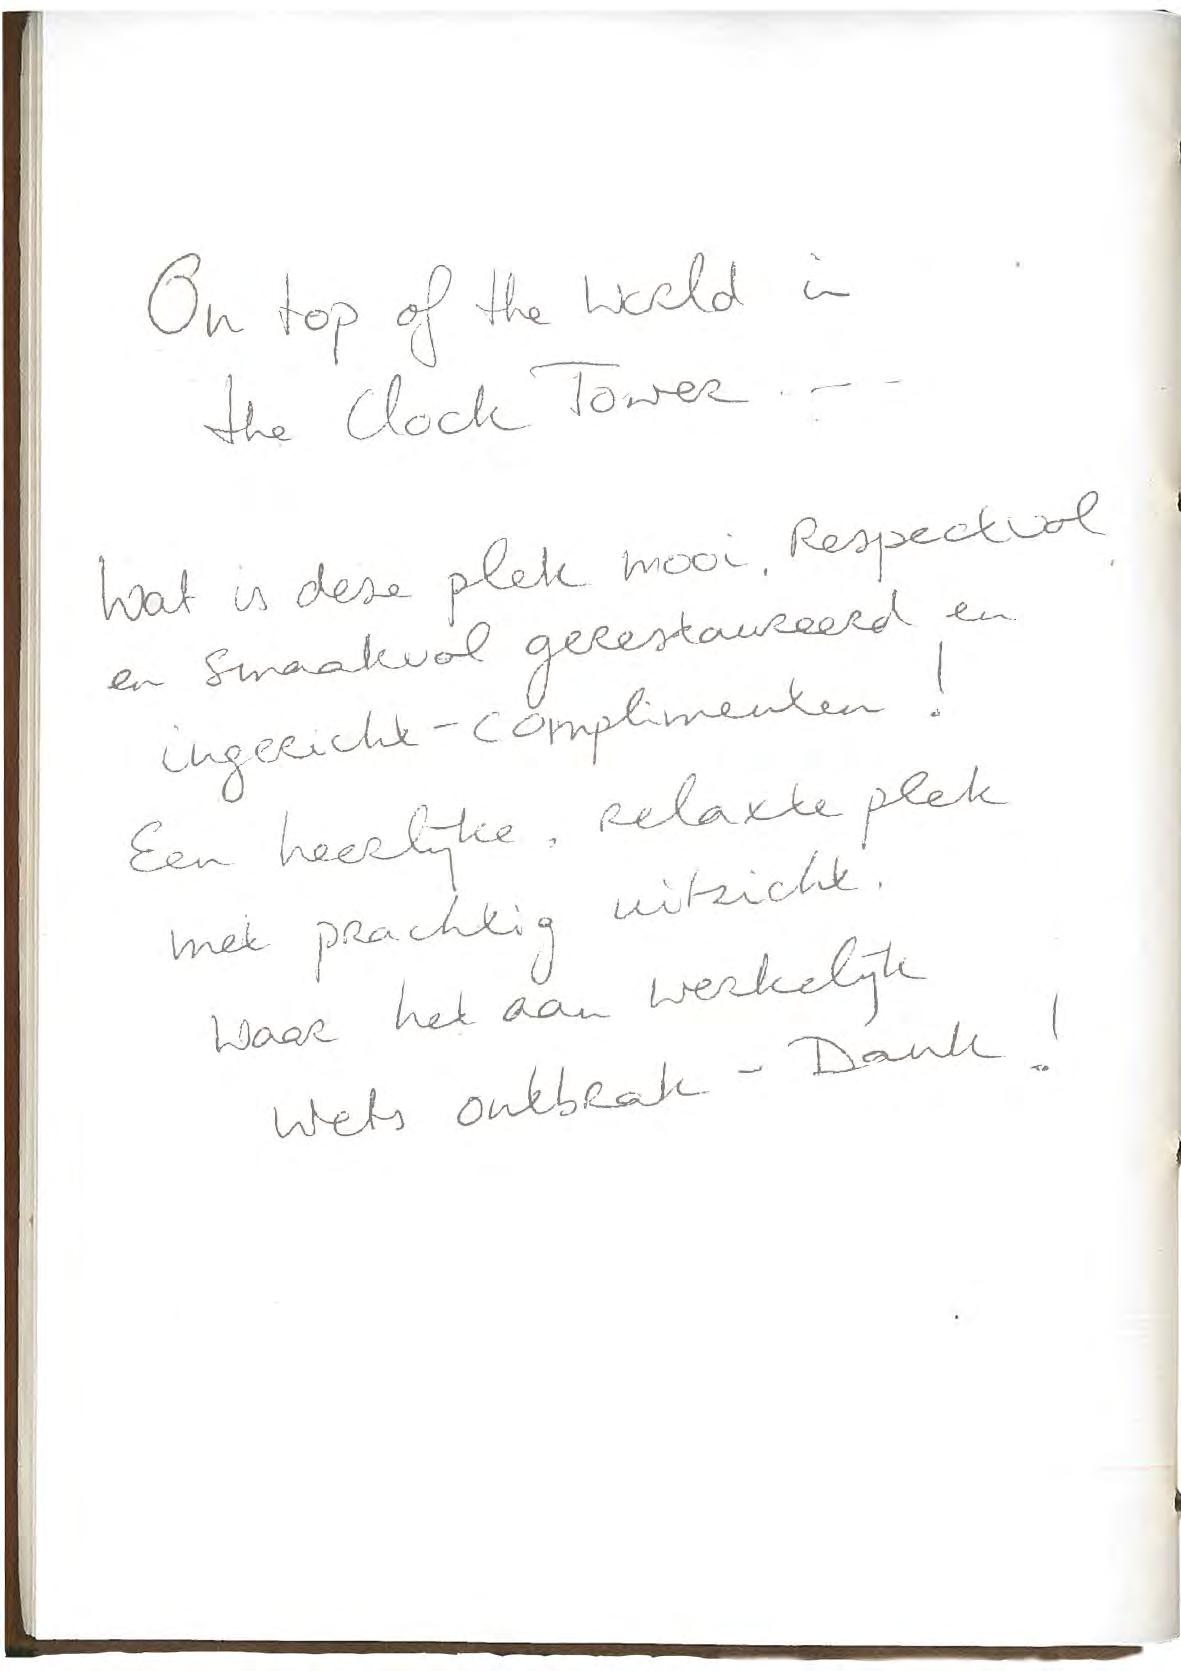 On top of the World in
the Clock Tower . - -
Wat is deze plek mooi. Respectvol
en smaakvol gerestaureerd en
ingericht - complimenten !
Een heerlijke, relaxte plek
met prachtig uitzicht.
Waar het aan werkelijk
niets ontbrak - Dank !